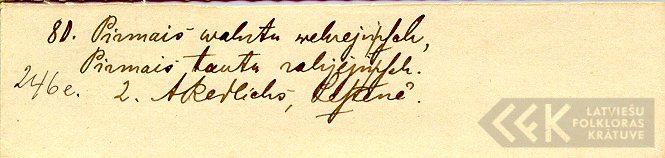 80. Pirmais walsts wehrejinsch,
Pirmais tautu rahjejinsch.
246e. 2. AKedlichs, Lestenê.
LATVIEŠU
FOLKLORAS
KRĀTUVE